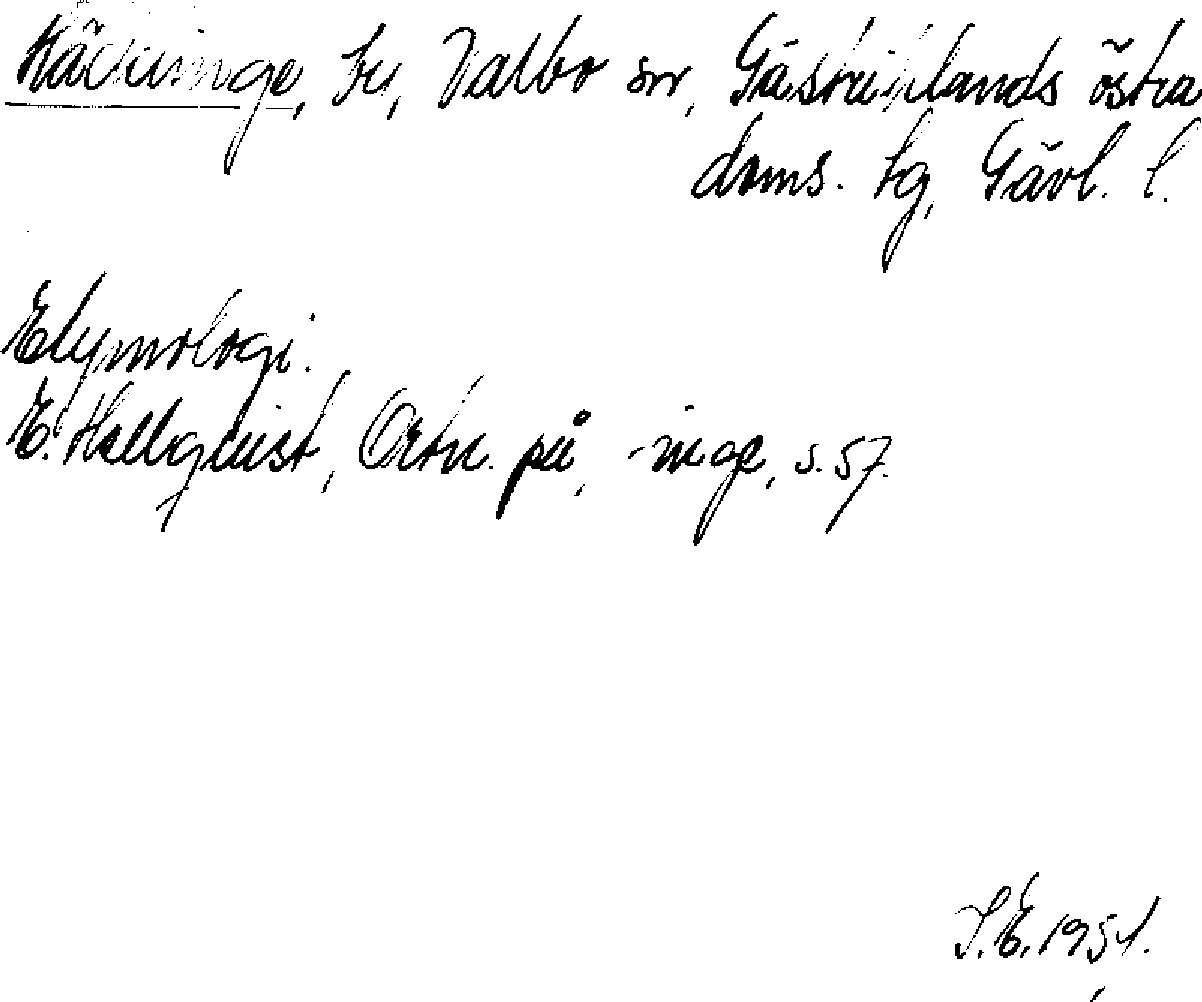 Häckinge, by, Valbo sn, Gästriklands östra
doms. tg, Gävl. l.
Etymologi.
E. Hellquist, Ortn. på -inge, s. 57.
S.E. 1951.